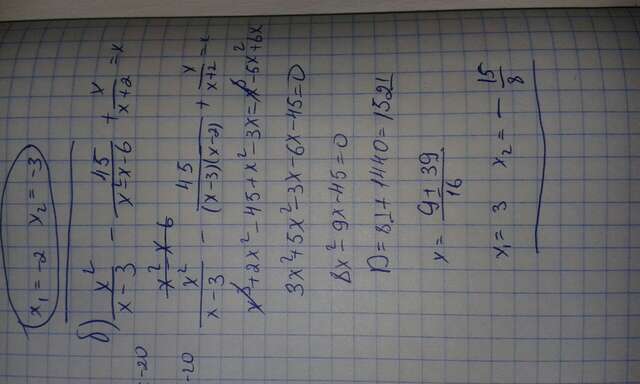 x₁ = -2 x₂ = -3
б) x²/(x-3) - 45/(x²-x-6) + x/(x+2) = x
x²-x-6
x²/(x-3) - 45/((x-3)(x-2)) + x/(x+2) = x
x³+2x²-45+x²-3x=x³-5x²+6x
3x²+5x²-3x-6x-45=0
8x²-9x-45=0
D=81+1440=1521
x = (9±39)/16
x₁ = 3 x₂ = -15/8
-20
-20